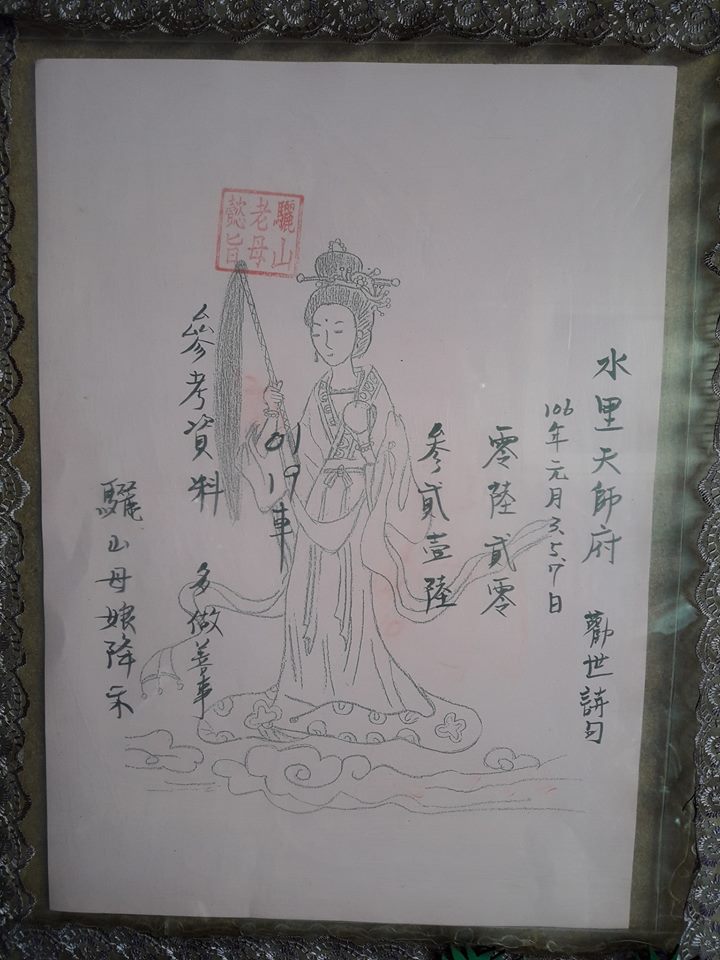 水里天師府 勸世詩句
106年元月3.5.7日
零陸貳零
參貳壹陸
01 19車
參考資料 多做善事
驪山母娘降示
驪山
老母
懿旨